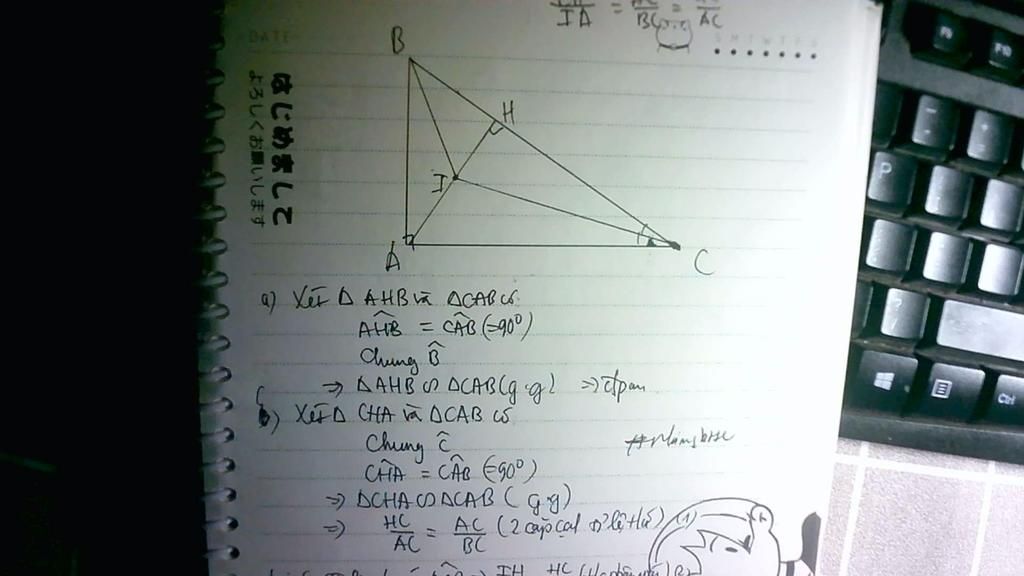 IA = BC = AC
DATE
S M T W T F S
はじめまして
よろしくお願いします
B
H
I
A
C
a) Xét Δ AHB và ΔCAB có
AHB = CAB (=90°)
Chung B̂
=> ΔAHB ∽ ΔCAB (g.g) => đpcm
b) Xét Δ CHA và ΔCAB có
Chung Ĉ
CHA = CAB (=90°)
=> ΔCHA ∽ ΔCAB (g.g)
=> HC/AC = AC/BC (2 cặp cạnh tỉ lệ) (1)
=> IH HC
P
Ctrl